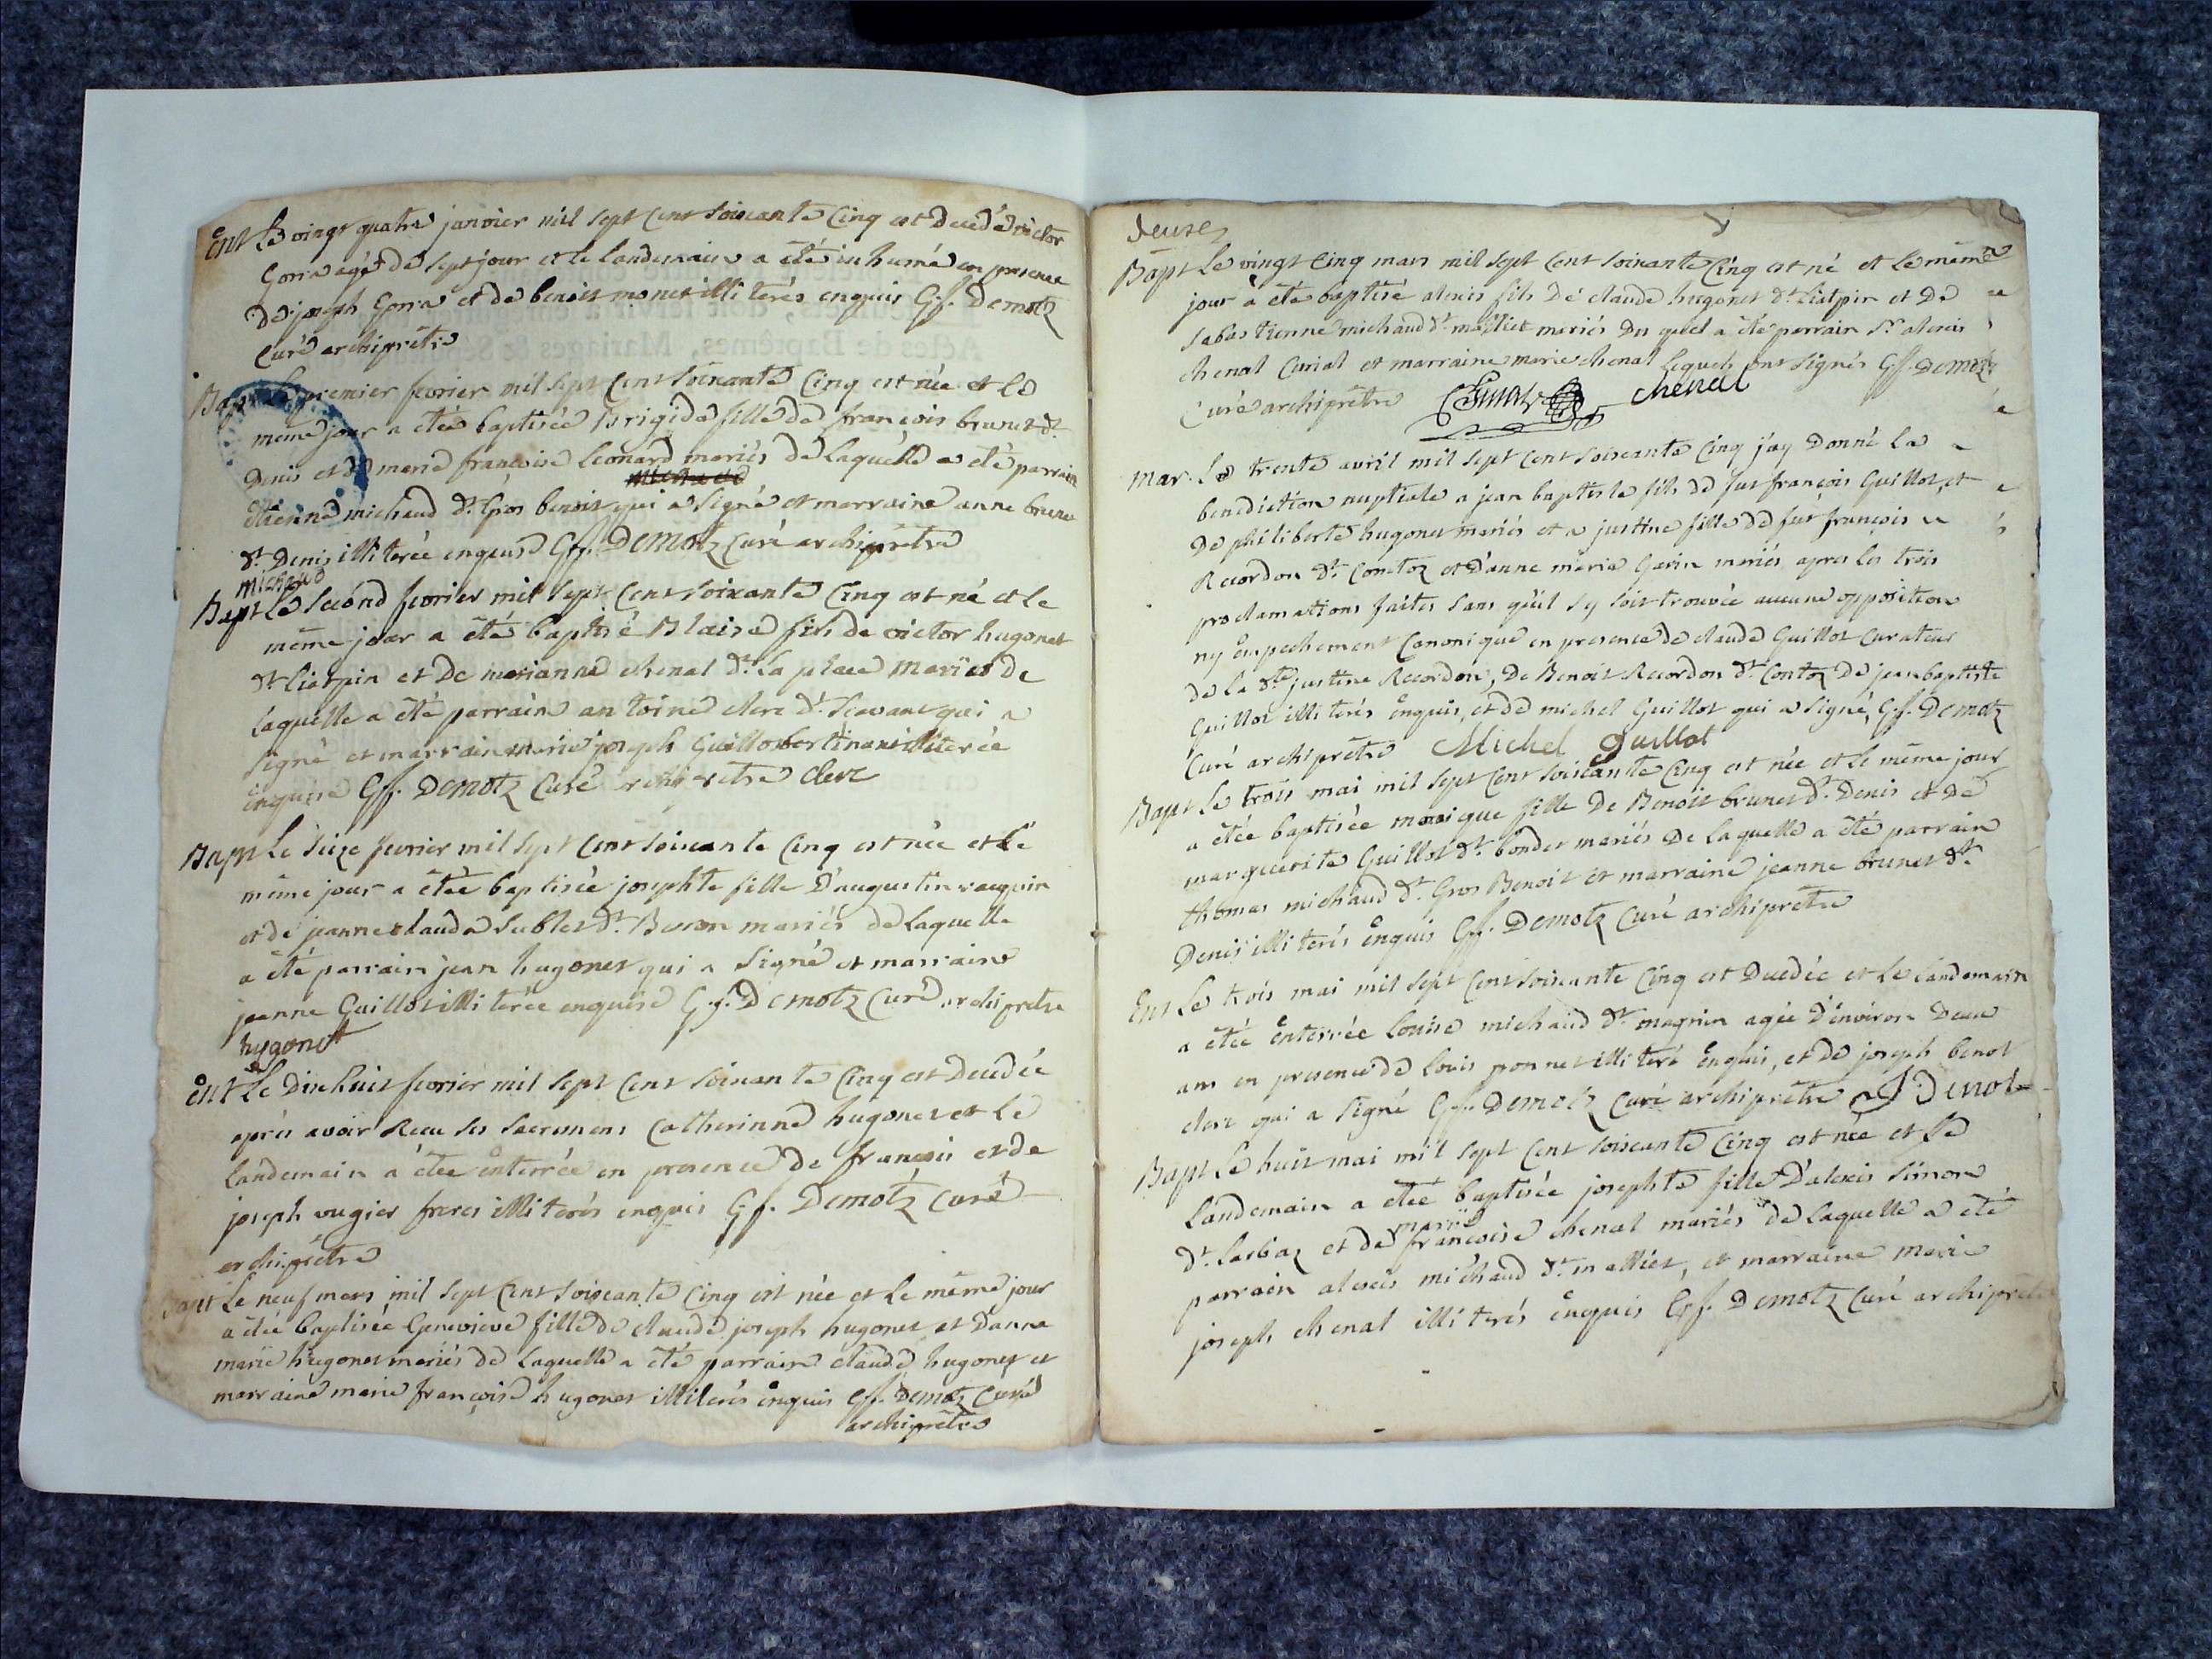 Ent Le vingt quatre janvier mil sept cent soixante cinq est decedé victor
Gorra agé de sept jour et le landemain a été inhumé en presence
de joseph Gorra et de benoit monet illiterés enquis Gf. Demotz
Curé archiprêtre
Bapt Le premier fevrier mil sept cent soixante cinq est née et le
même jour a étée baptisée Brigide fille de françois brunet dt.
Denis et de marie françoise Leonard mariés de laquelle a été parrain
étienne michaud dt. Gros benoit qui a signé et marraine anne brunet
dt. Denis illiterée enquise Gf. Demotz Curé archiprêtre
michaud
Bapt Le second fevrier mil sept cent soixante cinq est né et le
même jour a été baptisé Blaise fils de victor hugonet
dt. liatpin et de marianne chenal dt. la place mariés de
laquelle a été parrain antoine clerc dt. qui a
signé et marraine marie joseph Guillot illiterée
enquise Gf. Demotz Curé archiprêtre clerc
Bapt Le seize fevrier mil sept cent soixante cinq est née et le
même jour a étée baptisée josephte fille d'augustin
et de jeanne claude Sublet dt. mariés de laquelle
a été parrain jean hugonet qui a signé et marraine
jeanne Guillot illiterée enquise G.f. Demotz Curé archiprêtre
hugonet
Ent Le dixhuit fevrier mil sept cent soixante cinq est decedée
après avoir Recu ses sacremens Catherinne hugonet et le
landemain a étée enterrée en presence de françois et de
joseph vugier freres illiterés enquis Gf. Demotz Curé
archiprêtre
Bapt Le neuf mars mil sept cent soixante cinq est née et le même jour
a étée baptisée Genevieve fille de claude joseph hugonet et d'anne
marie hugonet mariés de laquelle a été parrain claude hugonet et
marraine marie françoise hugonet illiterés enquis Gf. Demotz Curé
archiprêtre
deuse
Bapt Le vingt cinq mars mil sept cent soixante cinq est né et le même
jour à été baptisé alexis fils de claude hugonet dt. liatpin et de
sabastienne michaud dt. malliet mariés du quel a été parrain Sr. alexis
chenal Curial et marraine marie chenal lequels ont signés Gf. Demotz
Curé archiprêtre Chenal chenal
Mar. Le trente avril mil sept cent soixante cinq j'ay donné la
benediction nuptiale a jean baptiste fils de fut françois Guillot, et
de philiberte hugonet mariés et a justine fille de fut françois
Recordon dt. Contoz et d'anne marie Gerin mariés apres les trois
proclamations faites sans qu'il sy soit trouvée aucune opposition
ny empechement Canonique en presence de claude Guillot Curateur
de la dte justine Recordon, de Benoit Recordon dt. Contoz de jean baptiste
Guillot illiterés enquis, et de michel Guillot qui a signé, Gf. Demotz
Curé archiprêtre Michel guillot
Bapt Le trois mai mil sept cent soixante cinq est née et le même jour
a étée baptisée monique fille de Benoit brunet dt. Denis et de
marguerite Guillot dt. bondet mariés de laquelle a été parrain
thomas michaud dt. Gros Benoit et marraine jeanne brunet dt.
Denis illiterés enquis Gf. Demotz Curé archiprêtre
Ent Le trois mai mil sept cent soixante cinq est decedée et le landemain
a étée enterrée louise michaud dt. magnin agée d'environ deux
ans en presence de louis ponnet illiteré enquis, et de joseph benot
clerc qui a signé Gf. Demotz Curé archiprêtre J Benot
Bapt Le huit mai mil sept cent soixante cinq est née et le
landemain a étée baptisée josephte fille d'alexis simon
dt. Larbaz et de marie françoise chenal mariés de laquelle a été
parrain alexis michaud dt. malliet, et marraine marie
joseph chenal illiterés enquis Gf. Demotz Curé archiprêtre